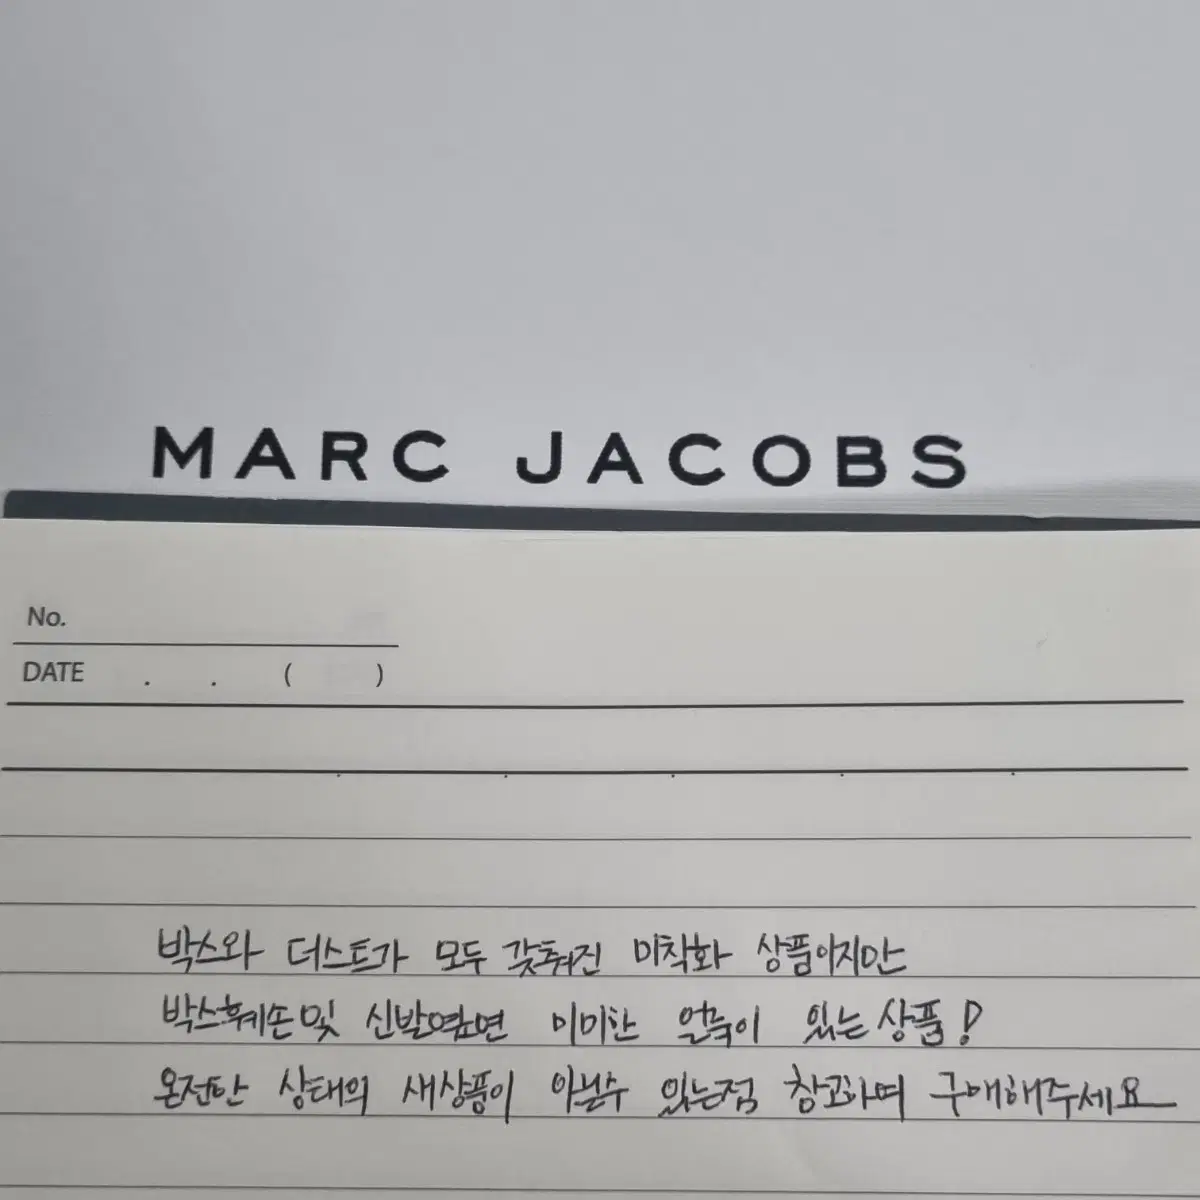 MARC JACOBS
No.
DATE . . ( )
박스와 더스트가 모두 갖춰진 미착화 상품이지만
박스훼손및 신발옆면 미미한 얼룩이 있는상품!
온전한 상태의 새상품이 아닐수 있는점 참고하며 구매해주세요